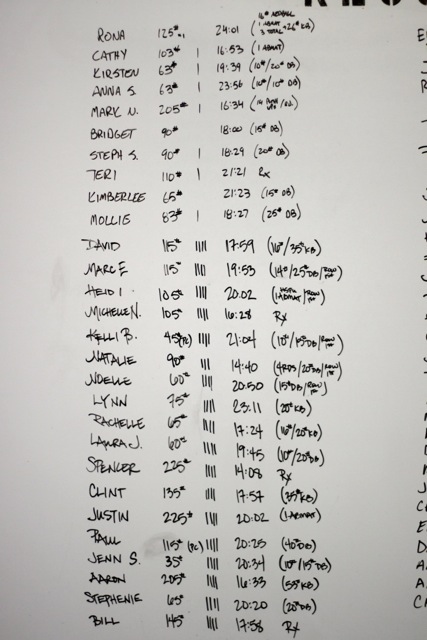 RONA 125# 24:01 (16# MEDBALL
CATHY 103# | 16:53 (1 ABMAT)
KIRSTEN 63# | 19:39 (10#/20# DB)
ANNA S. 63# | 23:56 (10#/10# DB)
MARK N. 205# | 16:34
BRIDGET 90# 18:00 (15# DB)
STEPH S. 90# | 18:29 (20# DB)
TERI 110# | 21:21 Rx
KIMBERLEE 65# 21:23 (15# DB)
MOLLIE 83# | 18:27 (25# DB)
DAVID 115# |||| 17:59 (16#/35# KB)
MARC F. 115# 19:53 (14#/25# DB/ROW
HEIDI 105# |||| 20:02 1 ABMAT/ROW
MICHELLE N. 105# 16:28 Rx
KELLI B. 45# (PC) |||| 21:04 (10#/15# DB/ROW
NATALIE 90# ||| 14:40 (4RDS/20# DB/ROW
NOELLE 60# 20:50 (15# DB/ROW
LYNN 75# |||| 23:11 (20# KB)
RACHELLE 65# 17:24 (16#/20# KB)
LAURA J. 60# 19:45 (10#/20# DB)
SPENCER 225# 14:08 Rx
CLINT 135# 17:57 (35# KB)
JUSTIN 225# |||| 20:02 (1 ABMAT)
PAUL 115# (PC) |||| 20:25 (40# DB)
JENN S. 35# 20:34 (10#/15# DB)
AARON 205# |||| 16:33 (55# KB)
STEPHENIE 65# |||| 20:20 (20# DB)
BILL 145# 17:58 Rx